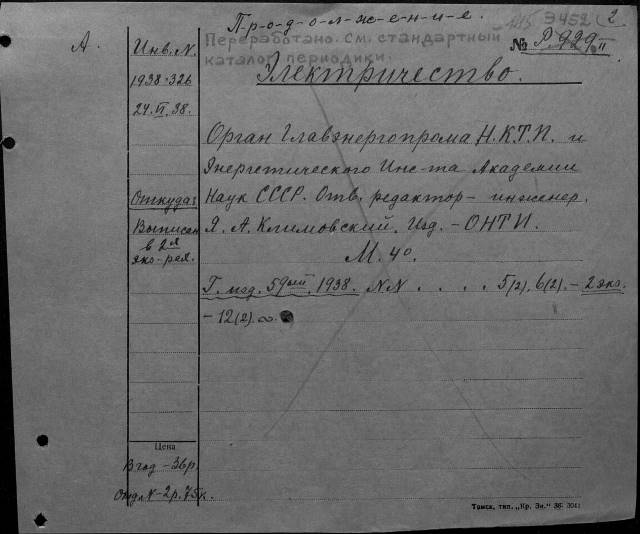 П-р-о-д-о-л-ж-е-н-и-е.
Э 452 (2
А.
Инв. N.
Переработано. См. стандартный
№ Р 929 II
каталог периодики.
1938-326
Электричество.
24.VI.38.
Орган Главэнергопрома Н.К.Т.П. и
Энергетического Инс-та Академии
Откуда:
Наук СССР. Отв. редактор - инженер.
Выписан
Я. А. Климовский. Изд. - ОНТИ.
в 2х
М. 4°.
экз-рах.
Г. изд. 59ый. 1938. NN . . . . 5(2), 6(2). - 2 экз.
- 12(2).
Цена
В год - 36 р.
Отд. N - 2 р. 75 к.
Томск, тип. „Кр. Зн." 36